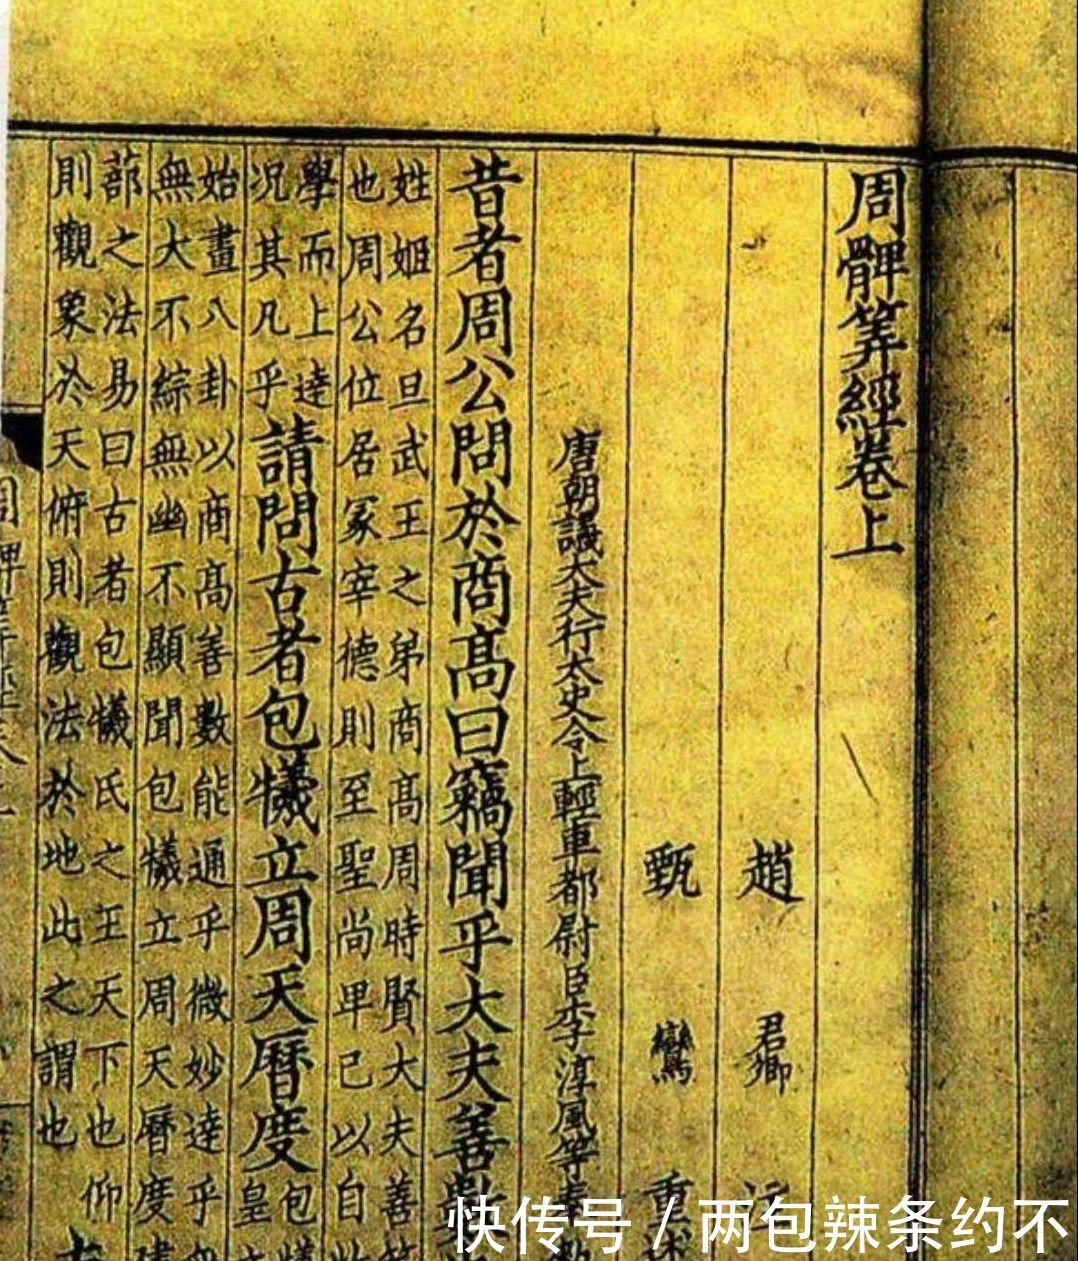 周髀筭經卷上
趙君卿
甄鸞重述
唐朝議大夫行太史令上輕車都尉臣李淳風等奉勅
昔者周公問於商高曰竊聞乎大夫善數
姓姬名旦武王之弟商高周時賢大夫善筭
也周公位居冢宰德則至聖尚卑己以自
學而上達
况其凡乎
請問古者包犧立周天曆度
包犧
皇
始畫八卦以商高善數能通乎微妙達乎無
無大不綜無幽不顯聞包犧立周天曆度建
蔀之法易曰古者包犧氏之王天下也仰
則觀象於天俯則觀法於地此之謂也
快传号 / 两包辣条约不